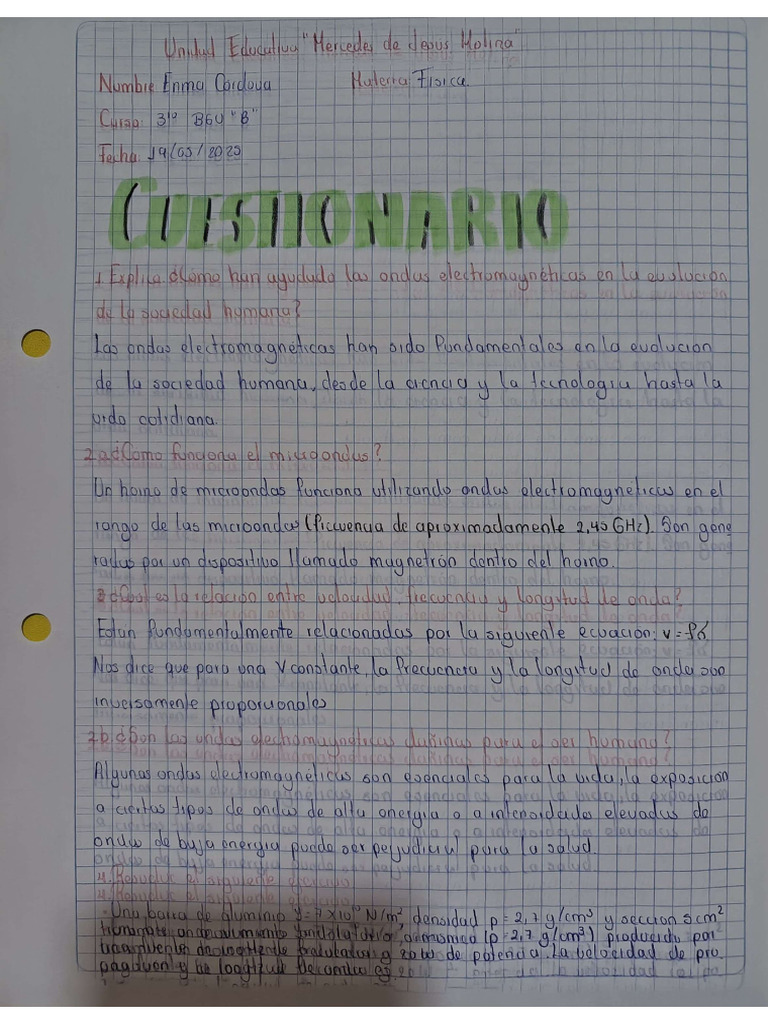 Unidad Educativa "Mercedes de Jesus Molina"
Nombre Enma Cordova Materia Física
Curso: 3ro BGU "B"
Fecha: 19/03/2025
CUESTIONARIO
1. Explica ¿Cómo han ayudado las ondas electromagnéticas en la evolución
de la sociedad humana?
Las ondas electromagnéticas han sido fundamentales en la evolucion
de la sociedad humana, desde la ciencia y la tecnología hasta la
vida cotidiana.
2a ¿Como funciona el microondas?
Un horno de microondas funciona utilizando ondas electromagneticas en el
rango de las microondas (frecuencia de aproximadamente 2,45 GHz). Son gene
radas por un dispositivo llamado magnetrón dentro del horno.
3 ¿Cual es la relación entre velocidad, frecuencia y longitud de onda?
Estan fundamentalmente relacionadas por la siguiente ecuacion: v=
Nos dice que para una V constante, la frecuencia y la longitud de onda son
inversamente proporcionales
2b ¿Son las ondas electromagnéticas dañinas para el ser humano?
Algunas ondas electromagnéticas son esenciales para la vida, la exposición
a ciertos tipos de ondas de alta energia o a intensidades elevadas de
ondas de baja energia puede ser perjudicial para la salud.
4. Resolver el siguiente ejercicio
Una barra de aluminio y=7x10¹⁰ N/m², densidad p=2,7 g/cm³ y seccion 5 cm²
(p=2,7 g/cm³) producido por
de potencia. La velocidad de pro
pagacion y la longitud de onda es